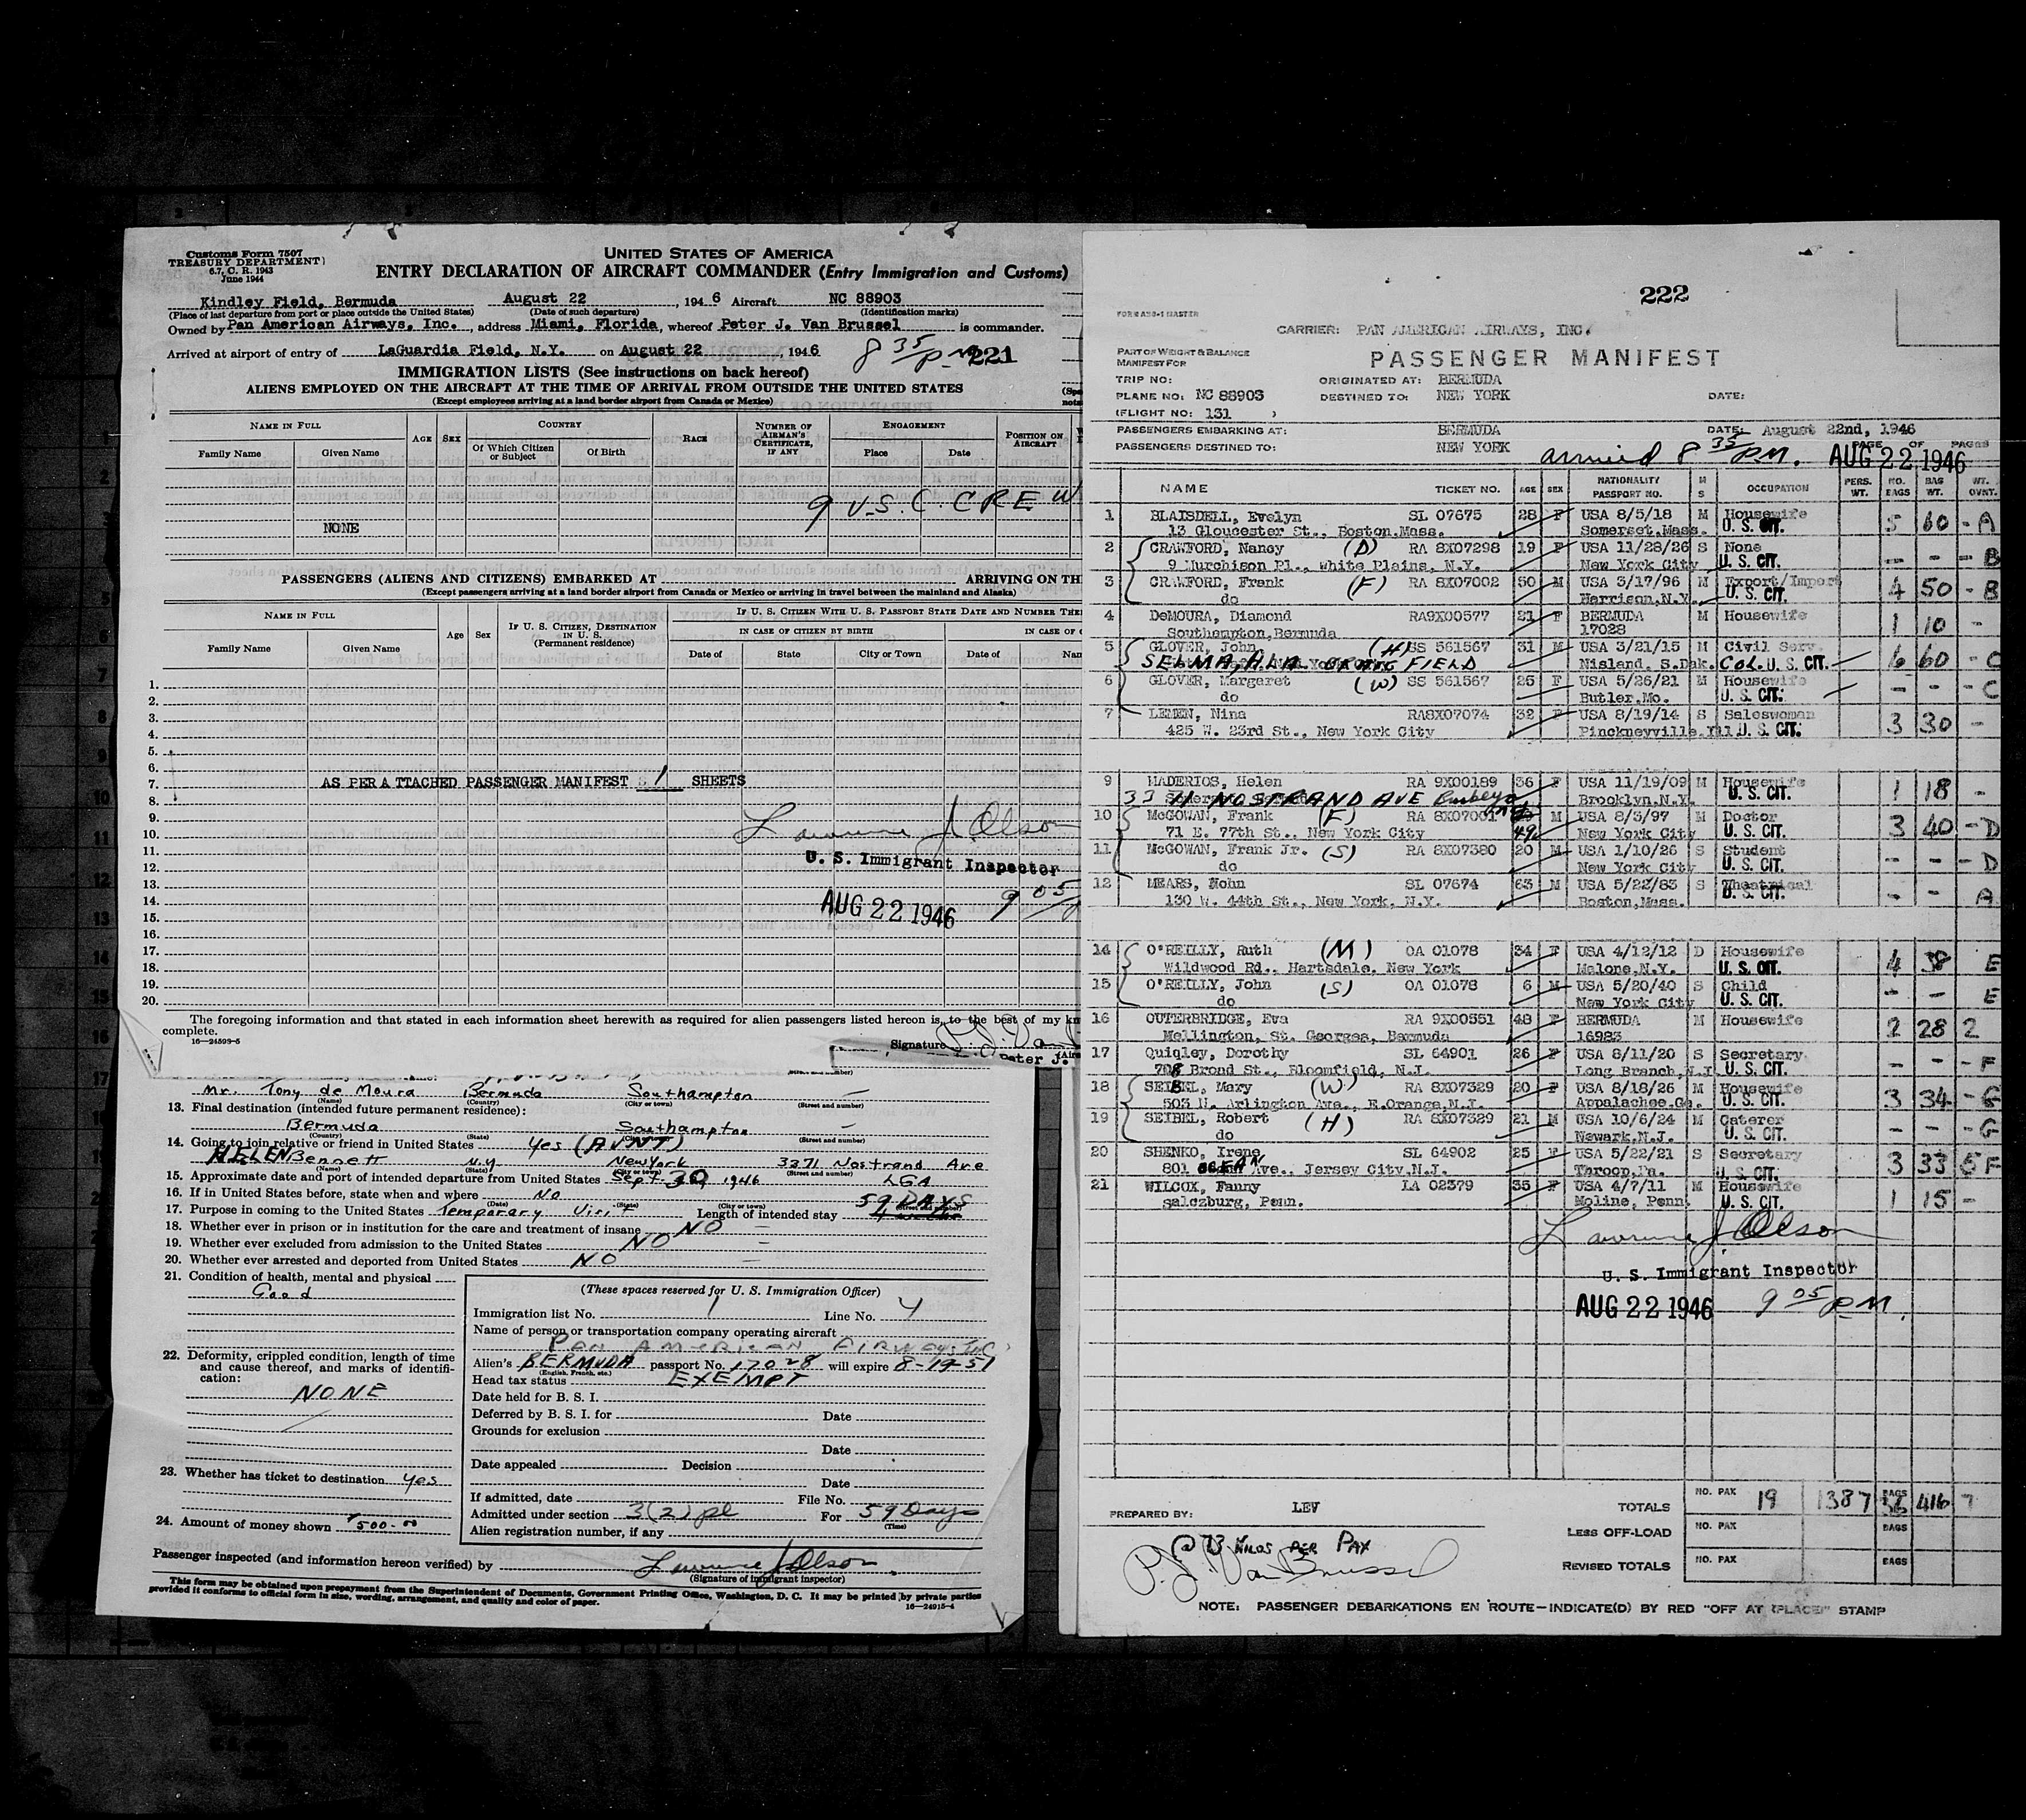 Customs Form 7507
TREASURY DEPARTMENT
6.7, C. R. 1943
June 1944
UNITED STATES OF AMERICA
ENTRY DECLARATION OF AIRCRAFT COMMANDER (Entry Immigration and Customs)
Kindley Field, Bermuda August 22, 1946 Aircraft NC 88903
(Place of last departure from port or place outside the United States) (Date of such departure) (Identification marks)
Owned by Pan American Airways, Inc., address Miami, Florida, whereof Peter J. Van Brussel is commander.
Arrived at airport of entry of LaGuardia Field, N.Y. on August 22, 1946 8 35/PM 221
IMMIGRATION LISTS (See instructions on back hereof)
ALIENS EMPLOYED ON THE AIRCRAFT AT THE TIME OF ARRIVAL FROM OUTSIDE THE UNITED STATES
(Except employees arriving at a land border airport from Canada or Mexico)
NAME IN FULL AGE SEX COUNTRY RACE NUMBER OF AIRMAN'S CERTIFICATE, IF ANY ENGAGEMENT POSITION ON AIRCRAFT
Family Name Given Name Of Which Citizen or Subject Of Birth Place Date
9 U.S.C. CREW
NONE
PASSENGERS (ALIENS AND CITIZENS) EMBARKED AT ARRIVING ON TH
(Except passengers arriving at a land border airport from Canada or Mexico or arriving in travel between the mainland and Alaska)
NAME IN FULL Age Sex IF U. S. CITIZEN, DESTINATION IN U. S. (Permanent residence) IF U. S. CITIZEN WITH U. S. PASSPORT STATE DATE AND NUMBER THE
IN CASE OF CITIZEN BY BIRTH IN CASE OF
Family Name Given Name Date of State City or Town Date of
1.
2.
3.
4.
5.
6.
7. AS PER ATTACHED PASSENGER MANIFEST 1 SHEETS
8.
9.
10. Lawrence J Olson
11.
12. U. S. Immigrant Inspector
13.
14. AUG 22 1946 9 05
15.
16.
17.
18.
19.
20.
The foregoing information and that stated in each information sheet herewith as required for alien passengers listed hereon is, to the best of my kn
complete.
16—24598-5
Signature
Peter J.
Mr. Tony de Moura Bermuda Southampton —
(Name) (Country) (City or town) (Street and number)
13. Final destination (intended future permanent residence):
Bermuda Southampton —
(Country) (State) (City or town) (Street and number)
14. Going to join relative or friend in United States Yes (AUNT)
HELEN Bennett N.Y New York 3371 Nostrand Ave
(Name) (State) (City or town) (Street and number)
15. Approximate date and port of intended departure from United States Sept 30, 1946 LGA
16. If in United States before, state when and where NO
(Date) (State) (City or town) (Street and number)
17. Purpose in coming to the United States Temporary Visit Length of intended stay 59 DAYS
18. Whether ever in prison or in institution for the care and treatment of insane NO
19. Whether ever excluded from admission to the United States NO
20. Whether ever arrested and deported from United States NO
21. Condition of health, mental and physical
Good
22. Deformity, crippled condition, length of time and cause thereof, and marks of identification:
NONE
23. Whether has ticket to destination yes
24. Amount of money shown $500.00
(These spaces reserved for U. S. Immigration Officer)
Immigration list No. 1 Line No. 4
Name of person or transportation company operating aircraft
PAN AMERICAN AIRWAYS INC.
Alien's BERMUDA passport No. 17028 will expire 8-19-51
(English, French, etc.)
Head tax status EXEMPT
Date held for B. S. I.
Deferred by B. S. I. for Date
Grounds for exclusion
Date
Date appealed Decision
Date
If admitted, date File No.
Admitted under section 3(2) pl For 59 Days
(Time)
Alien registration number, if any
Passenger inspected (and information hereon verified) by Lawrence J Olson
(Signature of immigrant inspector)
This form may be obtained upon prepayment from the Superintendent of Documents, Government Printing Office, Washington, D. C. It may be printed by private parties
provided it conforms to official form in size, wording, arrangement, and quality and color of paper.
16—24915-4
222
FORM AND-1 MASTER
CARRIER: PAN AMERICAN AIRWAYS, INC.
PART OF WEIGHT & BALANCE
MANIFEST FOR
PASSENGER MANIFEST
TRIP NO: ORIGINATED AT: BERMUDA
PLANE NO: NC 88903 DESTINED TO: NEW YORK DATE:
(FLIGHT NO: 131 )
PASSENGERS EMBARKING AT: BERMUDA DATE: August 22nd, 1946
PASSENGERS DESTINED TO: NEW YORK PAGE OF PAGES
arrived 8 35/PM. AUG 22 1946
NAME TICKET NO. AGE SEX NATIONALITY PASSPORT NO. M S OCCUPATION PERS. WT. NO. BAGS BAG WT. WT. OVNT.
1 BLAISDELL, Evelyn SL 07675 28 F USA 8/5/18 M Housewife 5 60 - A
13 Gloucester St., Boston, Mass. Somerset, Mass. U. S. CIT.
2 CRAWFORD, Nancy (D) RA 8X07298 19 F USA 11/28/26 S None - - - B
9 Murchison Pl., White Plains, N.Y. New York City U. S. CIT.
3 CRAWFORD, Frank (F) RA 8X07002 50 M USA 3/17/96 M Export/Import 4 50 - B
do Harrison, N.Y. U. S. CIT.
4 DeMOURA, Diamond RA9X00577 21 F BERMUDA M Housewife 1 10 -
Southampton, Bermuda 17028
5 GLOVER, John (H) SS 561567 31 M USA 3/21/15 M Civil Serv. 6 60 - C
SELMA, ALA. CRAIG FIELD Nisland, S.Dak. COL. U. S. CIT.
6 GLOVER, Margaret (W) SS 561567 25 F USA 5/26/21 M Housewife - - - C
do Butler, Mo. U. S. CIT.
7 LEMEN, Nina RA8X07074 32 F USA 8/19/14 S Saleswoman 3 30 -
425 W. 23rd St., New York City Pinckneyville Ill U. S. CIT.
9 MADERIOS, Helen RA 9X00189 36 F USA 11/19/09 M Housewife 1 18 -
3371 NOSTRAND AVE Brooklyn, N.Y. U. S. CIT.
10 McGOWAN, Frank (F) RA 8X07001 49 M USA 8/3/97 M Doctor 3 40 - D
71 E. 77th St., New York City New York City U. S. CIT.
11 McGOWAN, Frank Jr. (S) RA 8X07380 20 M USA 1/10/26 S Student - - - D
do New York City U. S. CIT.
12 MEARS, John SL 07674 63 M USA 5/22/83 S Theatrical - - A
130 W. 44th St., New York, N.Y. Boston, Mass. U. S. CIT.
14 O'REILLY, Ruth (M) OA 01078 34 F USA 4/12/12 D Housewife 4 38 E
Wildwood Rd., Hartsdale, New York Malone, N.Y. U. S. CIT.
15 O'REILLY, John (S) OA 01078 6 M USA 5/20/40 S Child - - E
do New York City U. S. CIT.
16 OUTERBRIDGE, Eva RA 9X00551 48 F BERMUDA M Housewife 2 28 2
Mellington, St. Georges, Bermuda 16983
17 Quigley, Dorothy SL 64901 26 F USA 8/11/20 S Secretary - - - F
708 Broad St., Bloomfield, N.J. Long Branch, N.J. U. S. CIT.
18 SEIBEL, Mary (W) RA 8X07329 20 F USA 8/18/26 M Housewife 3 34 - G
503 N. Arlington Ave., E.Orange, N.J. Appalachee, Ga. U. S. CIT.
19 SEIBEL, Robert (H) RA 8X07329 21 M USA 10/6/24 M Caterer - - - G
do Newark, N.J. U. S. CIT.
20 SHENKO, Irene SL 64902 25 F USA 5/22/21 S Secretary 3 33 5 F
801 OCEAN Ave., Jersey City, N.J. Throop, Pa. U. S. CIT.
21 WILCOX, Fanny LA 02379 35 F USA 4/7/11 M Housewife 1 15 -
Salczburg, Penn. Moline, Penn. U. S. CIT.
Lawrence J Olson
U. S. Immigrant Inspector
AUG 22 1946 9 05/PM.
PREPARED BY: LEV TOTALS NO. PAX 19 1387 BAGS 36 416 7
LESS OFF-LOAD NO. PAX BAGS
REVISED TOTALS NO. PAX BAGS
@ 73 KILOS PER PAX
P. J. Van Brussel
NOTE: PASSENGER DEBARKATIONS EN ROUTE—INDICATE(D) BY RED "OFF AT (PLACE)" STAMP